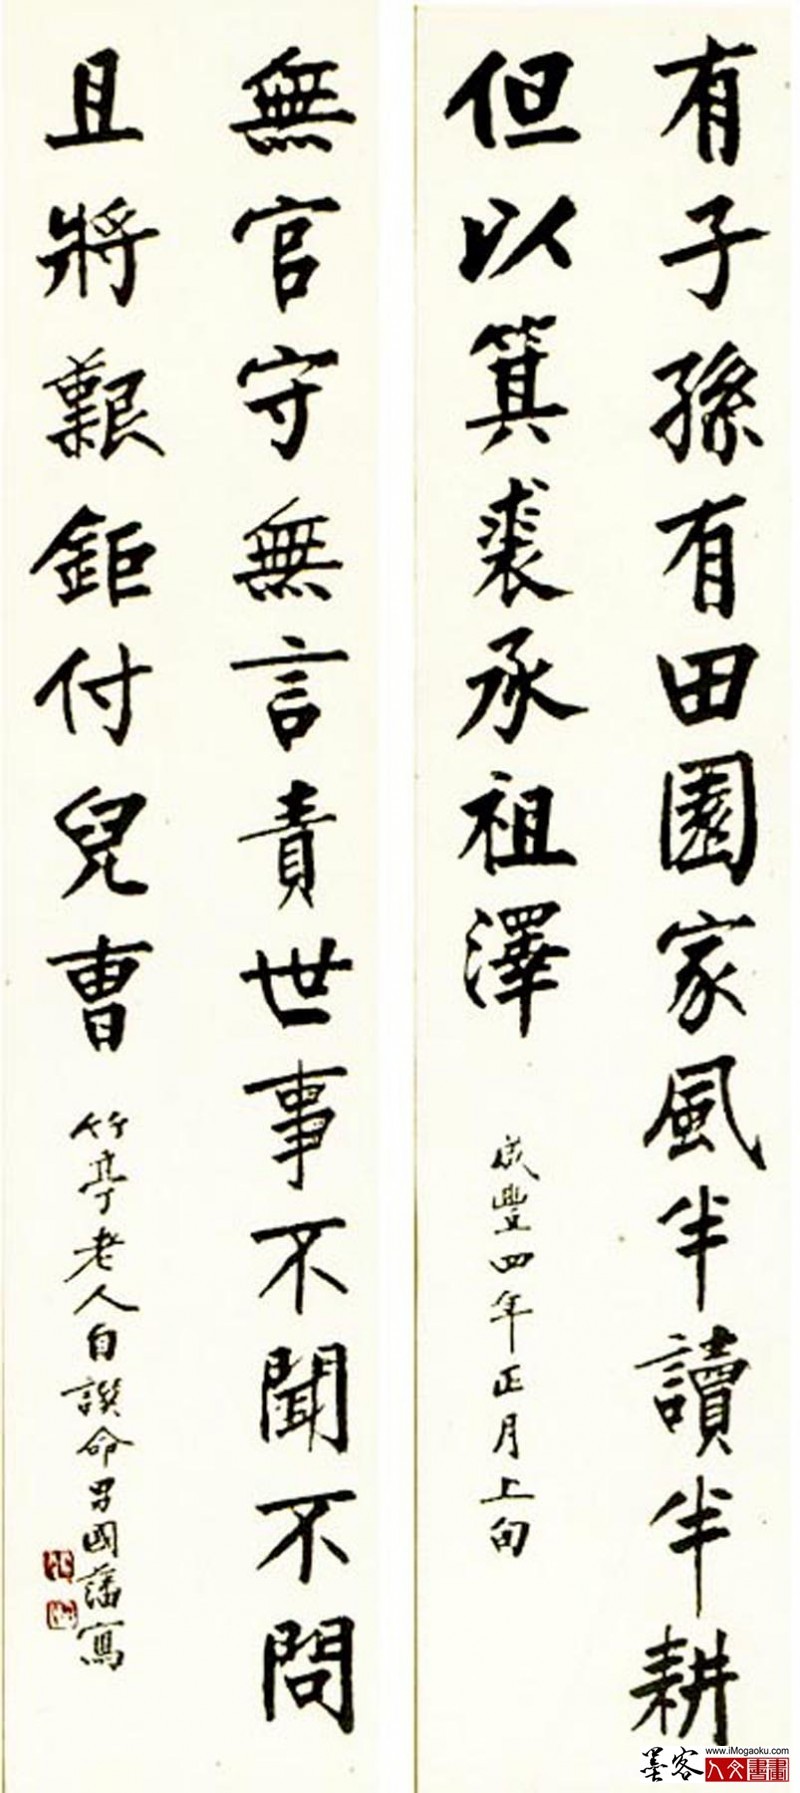 有子孫有田園家風半讀半耕
但以箕裘承祖澤
咸豐四年正月上旬
無官守無言責世事不聞不問
且將艱鉅付兒曹
竹亭老人自譔命男國藩寫
www.iMogaoku.com
墨客
人文書畫